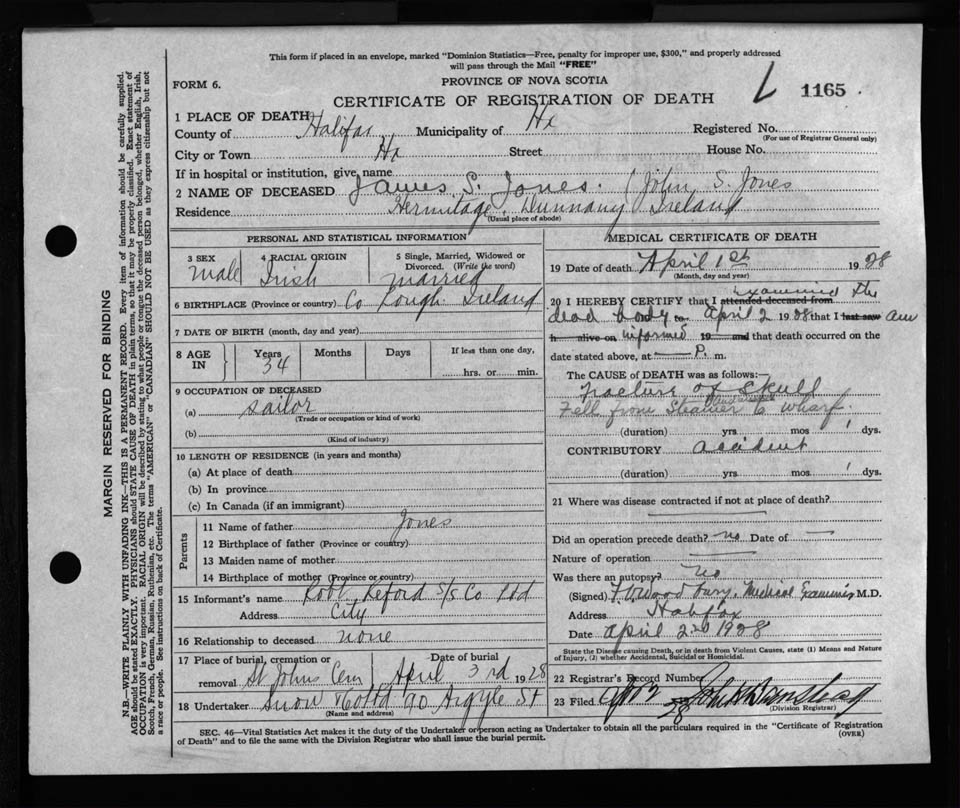 This form if placed in an envelope, marked "Dominion Statistics—Free, penalty for improper use, $300," and properly addressed
will pass through the Mail "FREE"
FORM 6.
PROVINCE OF NOVA SCOTIA
CERTIFICATE OF REGISTRATION OF DEATH
L 1165
1 PLACE OF DEATH
County of Halifax Municipality of Hx Registered No.
(For use of Registrar General only)
City or Town Hx Street House No.
If in hospital or institution, give name
2 NAME OF DECEASED James S. Jones. (John S. Jones
Residence Hermitage, Dunnany Ireland
(Usual place of abode)
PERSONAL AND STATISTICAL INFORMATION
3 SEX male
4 RACIAL ORIGIN Irish
5 Single, Married, Widowed or Divorced. (Write the word) married
6 BIRTHPLACE (Province or country) Co Lough. Ireland
7 DATE OF BIRTH (month, day and year)
8 AGE IN Years 34 Months Days If less than one day, hrs. or min.
9 OCCUPATION OF DECEASED
(a) sailor
(Trade or occupation or kind of work)
(b)
(Kind of industry)
10 LENGTH OF RESIDENCE (in years and months)
(a) At place of death
(b) In province
(c) In Canada (if an immigrant)
Parents
11 Name of father Jones
12 Birthplace of father (Province or country)
13 Maiden name of mother
14 Birthplace of mother (Province or country)
15 Informant's name Robt. Reford S/S Co Ltd
Address City
16 Relationship to deceased none
17 Place of burial, cremation or removal St Johns Cem Date of burial April 3rd 1928
18 Undertaker Snow & Co Ltd 90 Argyle St
(Name and address)
MEDICAL CERTIFICATE OF DEATH
19 Date of death April 1st 1928
(Month, day and year)
20 I HEREBY CERTIFY that I attended deceased from examined the
dead body to April 2 1928 that I last saw am
h alive on informed 19 and that death occurred on the
date stated above, at — P. m.
The CAUSE OF DEATH was as follows:—
Fracture of Skull
Fell from Steamer to wharf
(duration) yrs mos 1 dys.
CONTRIBUTORY accident
(duration) yrs mos 1 dys.
21 Where was disease contracted if not at place of death?
Did an operation precede death? no Date of —
Nature of operation —
Was there an autopsy? no
(Signed) Woodbury. Medical Examiner M.D.
Address Halifax
Date April 2nd 1928
State the Disease causing Death, or in death from Violent Causes, state (1) Means and Nature of Injury, (2) whether Accidental, Suicidal or Homicidal.
22 Registrar's Record Number
23 Filed 28
(Division Registrar)
SEC. 46—Vital Statistics Act makes it the duty of the Undertaker or person acting as Undertaker to obtain all the particulars required in the "Certificate of Registration
of Death" and to file the same with the Division Registrar who shall issue the burial permit.
(OVER)
MARGIN RESERVED FOR BINDING
N.B.—WRITE PLAINLY WITH UNFADING INK—THIS IS A PERMANENT RECORD. Every item of information should be carefully supplied.
AGE should be stated EXACTLY. PHYSICIANS should STATE CAUSE OF DEATH in plain terms, so that it may be properly classified. Exact statement of
OCCUPATION is very important. RACIAL ORIGIN will be described by stating to what people or tongue the deceased person belonged, whether English, Irish,
Scotch, French, German, Russian, Ruthenian, etc. The terms "AMERICAN" or "CANADIAN" SHOULD NOT BE USED as they express citizenship but not
a race or people. See instructions on back of Certificate.